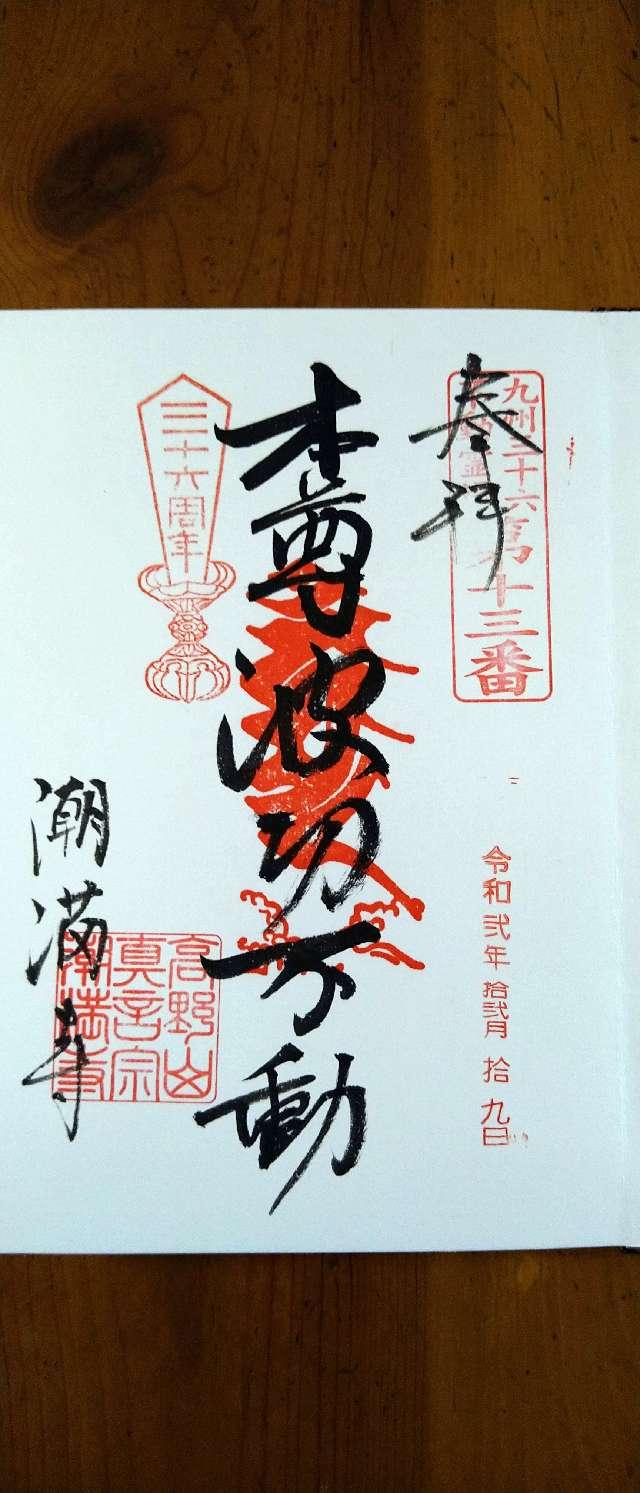 九州三十六
第十三番
奉拝
令和弐年拾弐月拾九日
本尊波切不動
三十六周年
高野山
真言宗
潮満寺
潮満寺